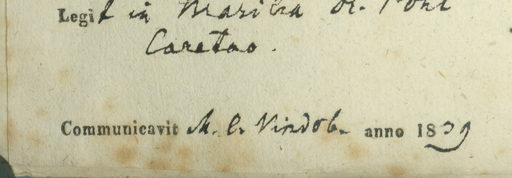 Legit in Marilia ad Pont
Caretao.
Communicavit M. C. Vindob. anno 1839